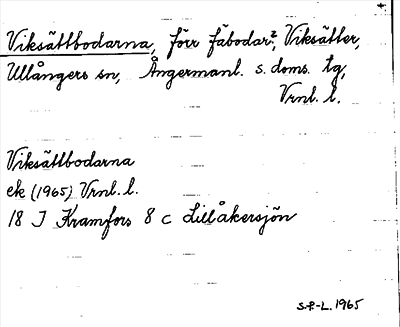 Viksättbodarna, förr fäbodar², Viksätter,
Ullångers sn, Ångermanl. s. doms. tg,
Vrnl. l.
Viksättbodarna
ek (1965) Vrnl. l.
18 J Kramfors 8 c Lillåkersjön
S.F-L. 1965